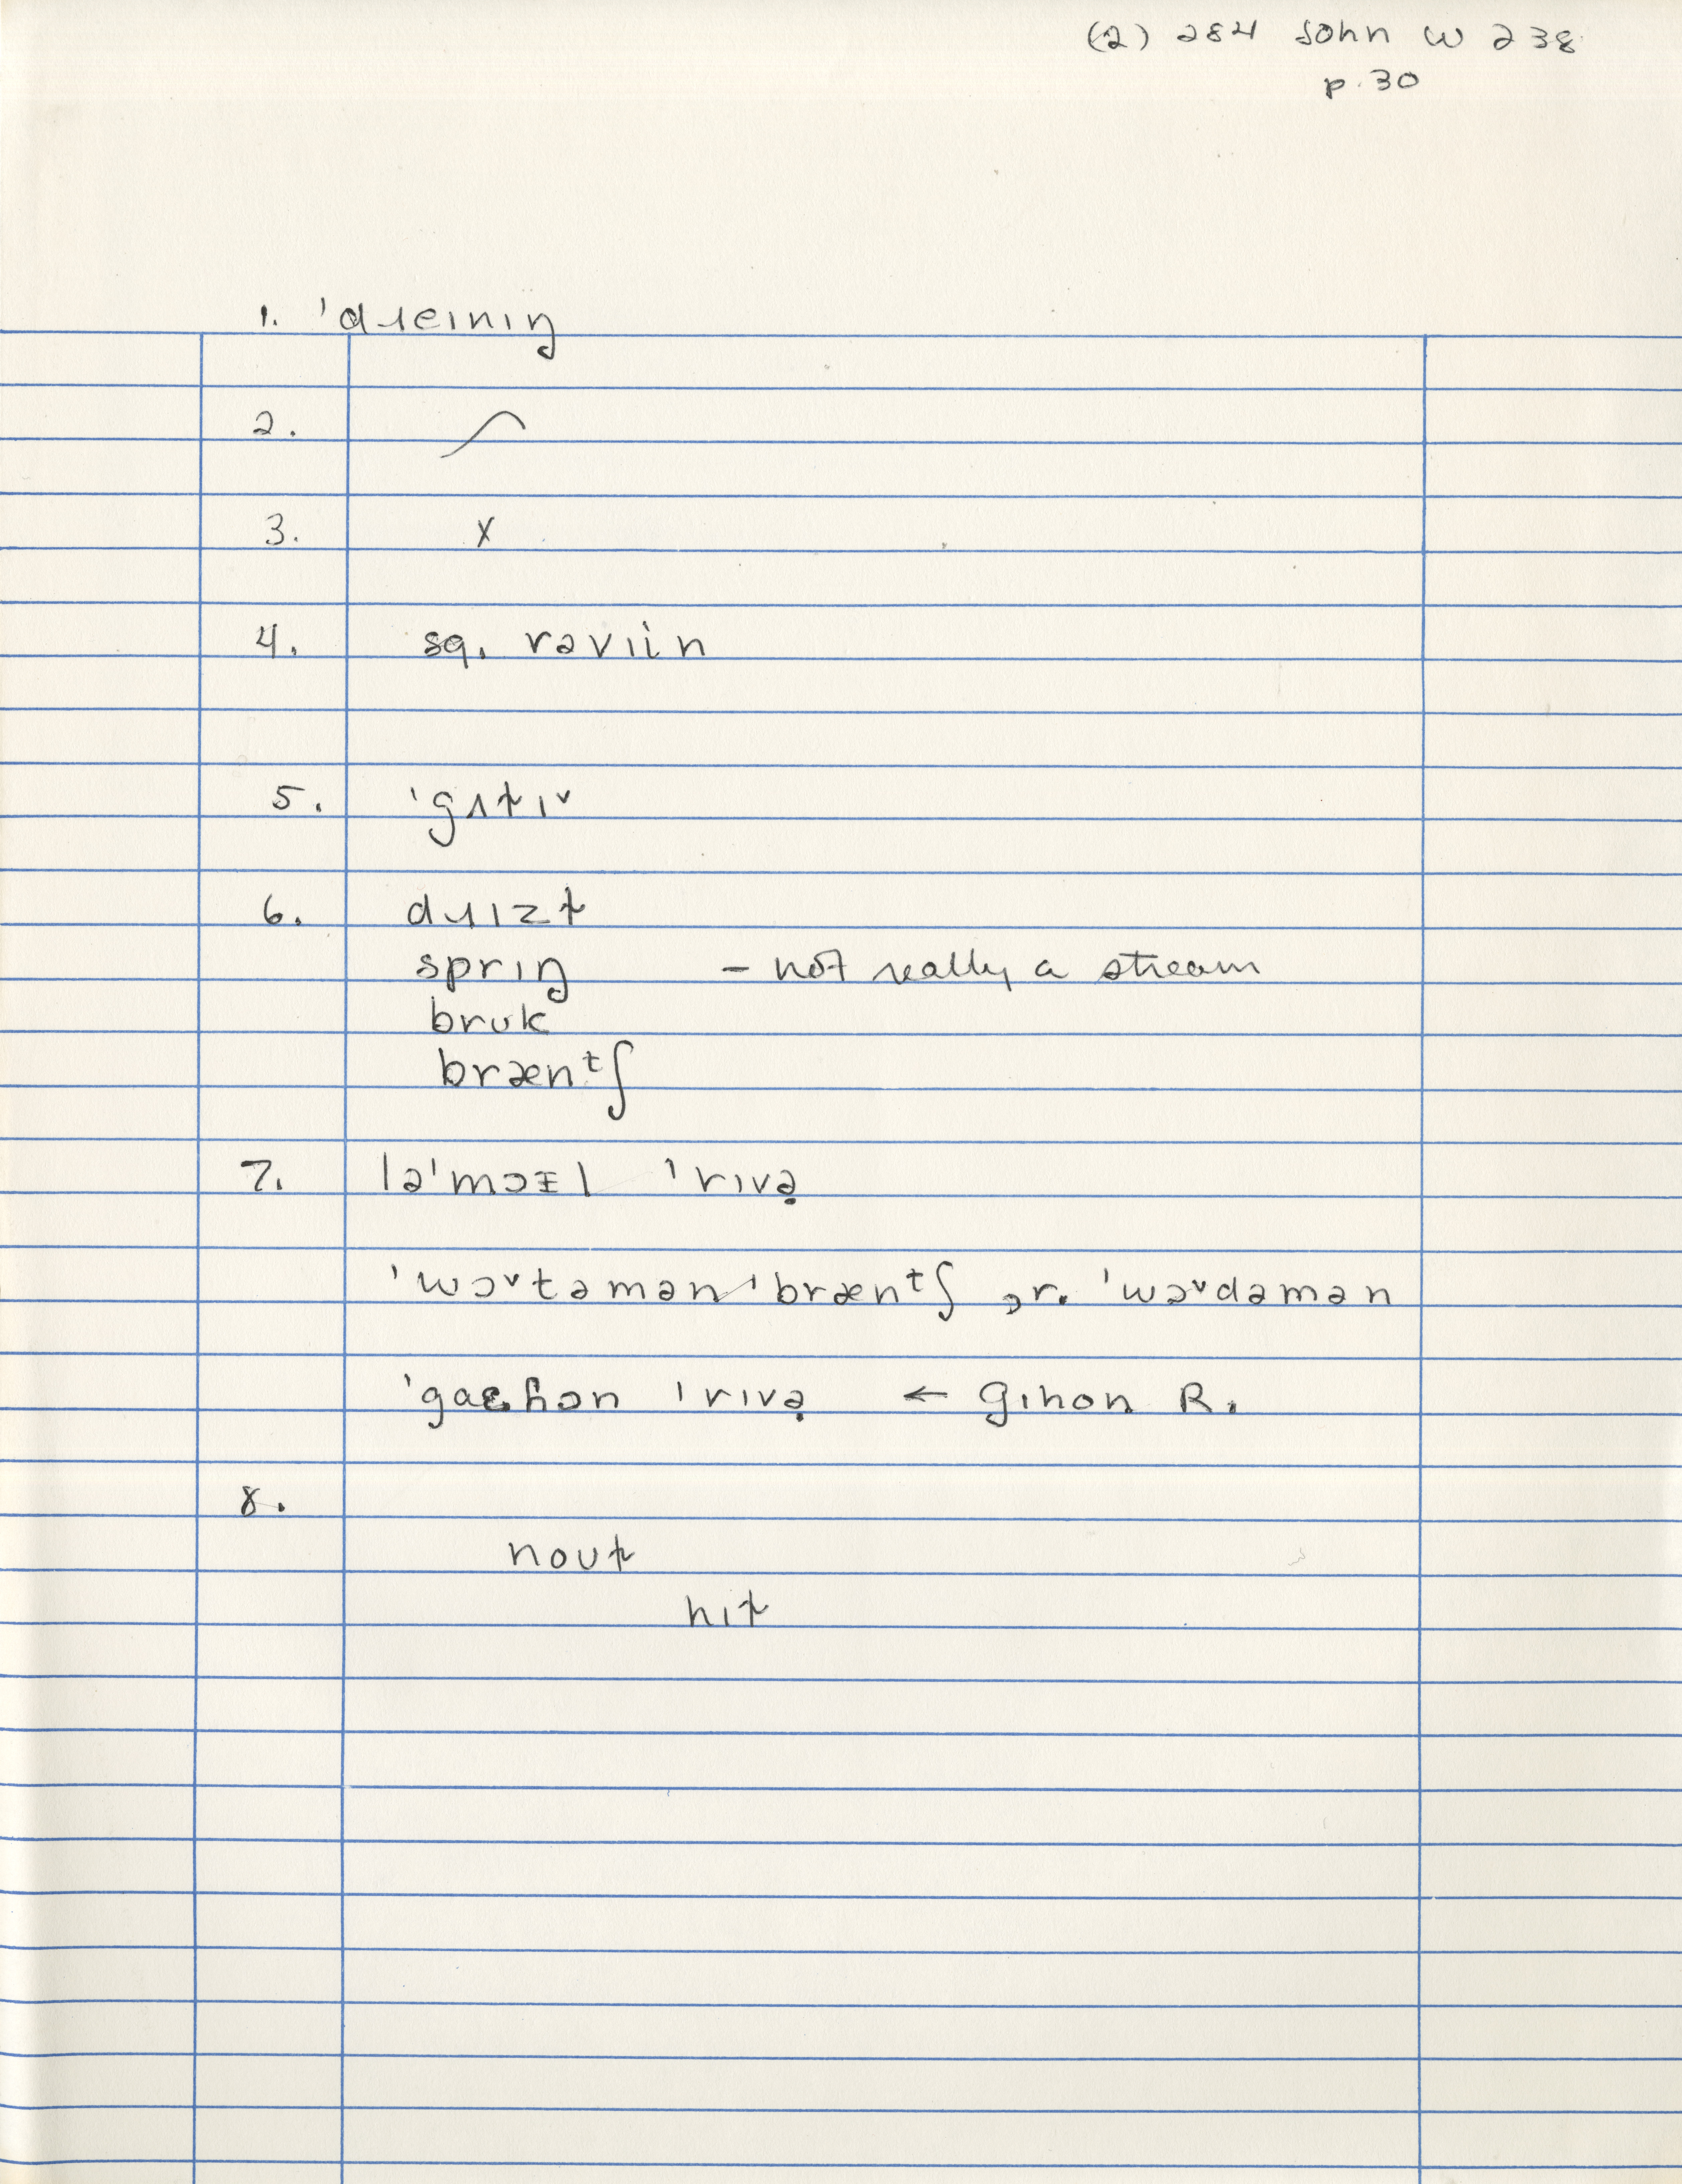 (2) 284 John W 238
p. 30
1. ˈdɹeɪnɪŋ
2. ⌒
3. X
4. sg. rəvɪin
5. ˈgʌt̬ɪ˅
6. dɹɪzt̬
sprɪŋ – not really a stream
brʊk
brænᵗʃ
7. ləˈmɔɪl ˈrɪvə̣
ˈwɔ˅təmənˈbrænᵗʃ ɔr. ˈwɔ˅dəmən
ˈgaɛɦɔn ˈrɪvə̣ ← Gihon R.
8.
noʊt̬
hɪt̬